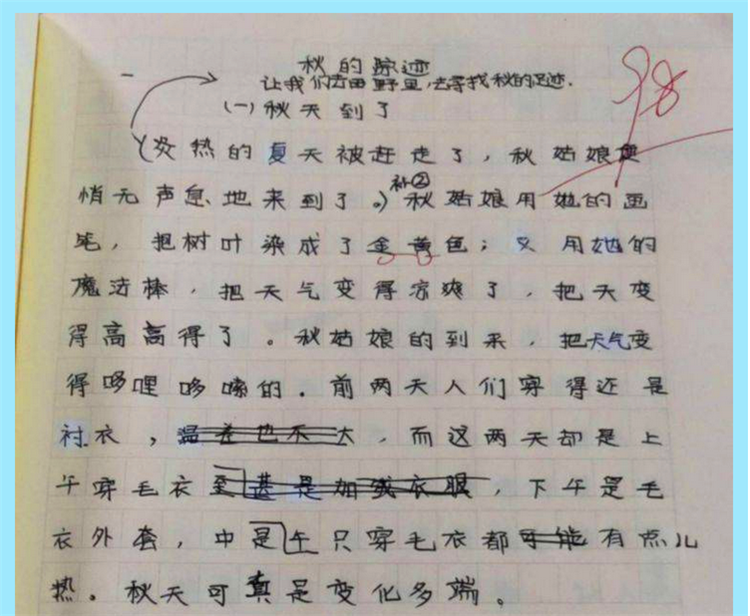 秋的踪迹
让我们去田野里,去寻找秋的足迹.
(一)秋天到了
98
(炎热的夏天被赶走了,秋姑娘便
悄无声息地来到了。)补②秋姑娘用她的画
笔,把树叶染成了金黄色;又用她的
魔法棒,把天气变得凉爽了,把天变
得高高得了。秋姑娘的到来,把天气变
得哆哩哆嗦的.前两天人们穿得还是
衬衣,温差也不大,而这两天却是上
午穿毛衣至甚是加绒衣服,下午是毛
衣外套,中是午只穿毛衣都可能有点儿
热。秋天可真是变化多端。